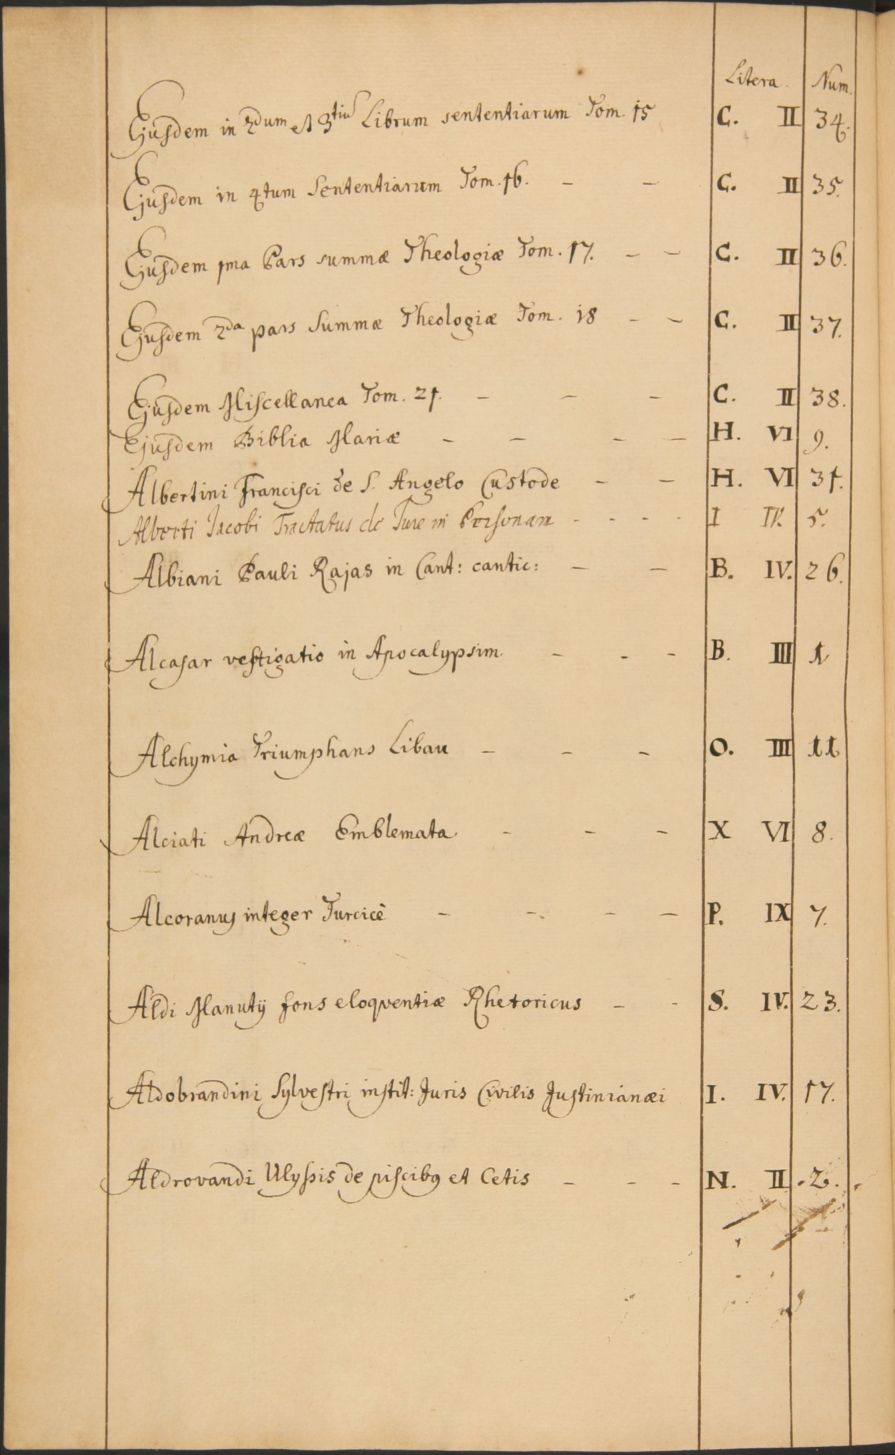 Litera. Num.
Ejusdem in 2dum et 3tiu Librum sententiarum Tom. 15 C. II 34.
Ejusdem in 4tum Sententiarum Tom. 16. – – C. II 35.
Ejusdem 1ma Pars summæ Theologiæ Tom. 17. – – C. II 36.
Ejusdem 2da pars Summæ Theologiæ Tom. 18 – – C. II 37.
Ejusdem Miscellanea Tom. 21. – – – C. II 38.
Ejusdem Biblia Mariæ – – – – H. VI 9.
Albertini Francisci de S. Angelo Custode – – H. VI 31.
Alberti Jacobi Tractatus de Jure in Personam - - - - I IV. 5.
Albiani Pauli Rajas in Cant: cantic: – – B. IV. 26.
Alcasar vestigatio in Apocalypsim. – - – B. III 1
Alchymia Triumphans Libau – – – O. III 11
Alciati Andreæ Emblemata. - – – X VI 8.
Alcoranus integer Turcicè – – – – P. IX 7.
Aldi Manutij fons eloqventiæ Rhetoricus – - S. IV. 23.
Aldobrandini Sylvestri instit: Juris Civilis Justinianæi I. IV. 17.
Aldrovandi Ulyssis de piscibꝰ et Cetis – – – N. II. 2.